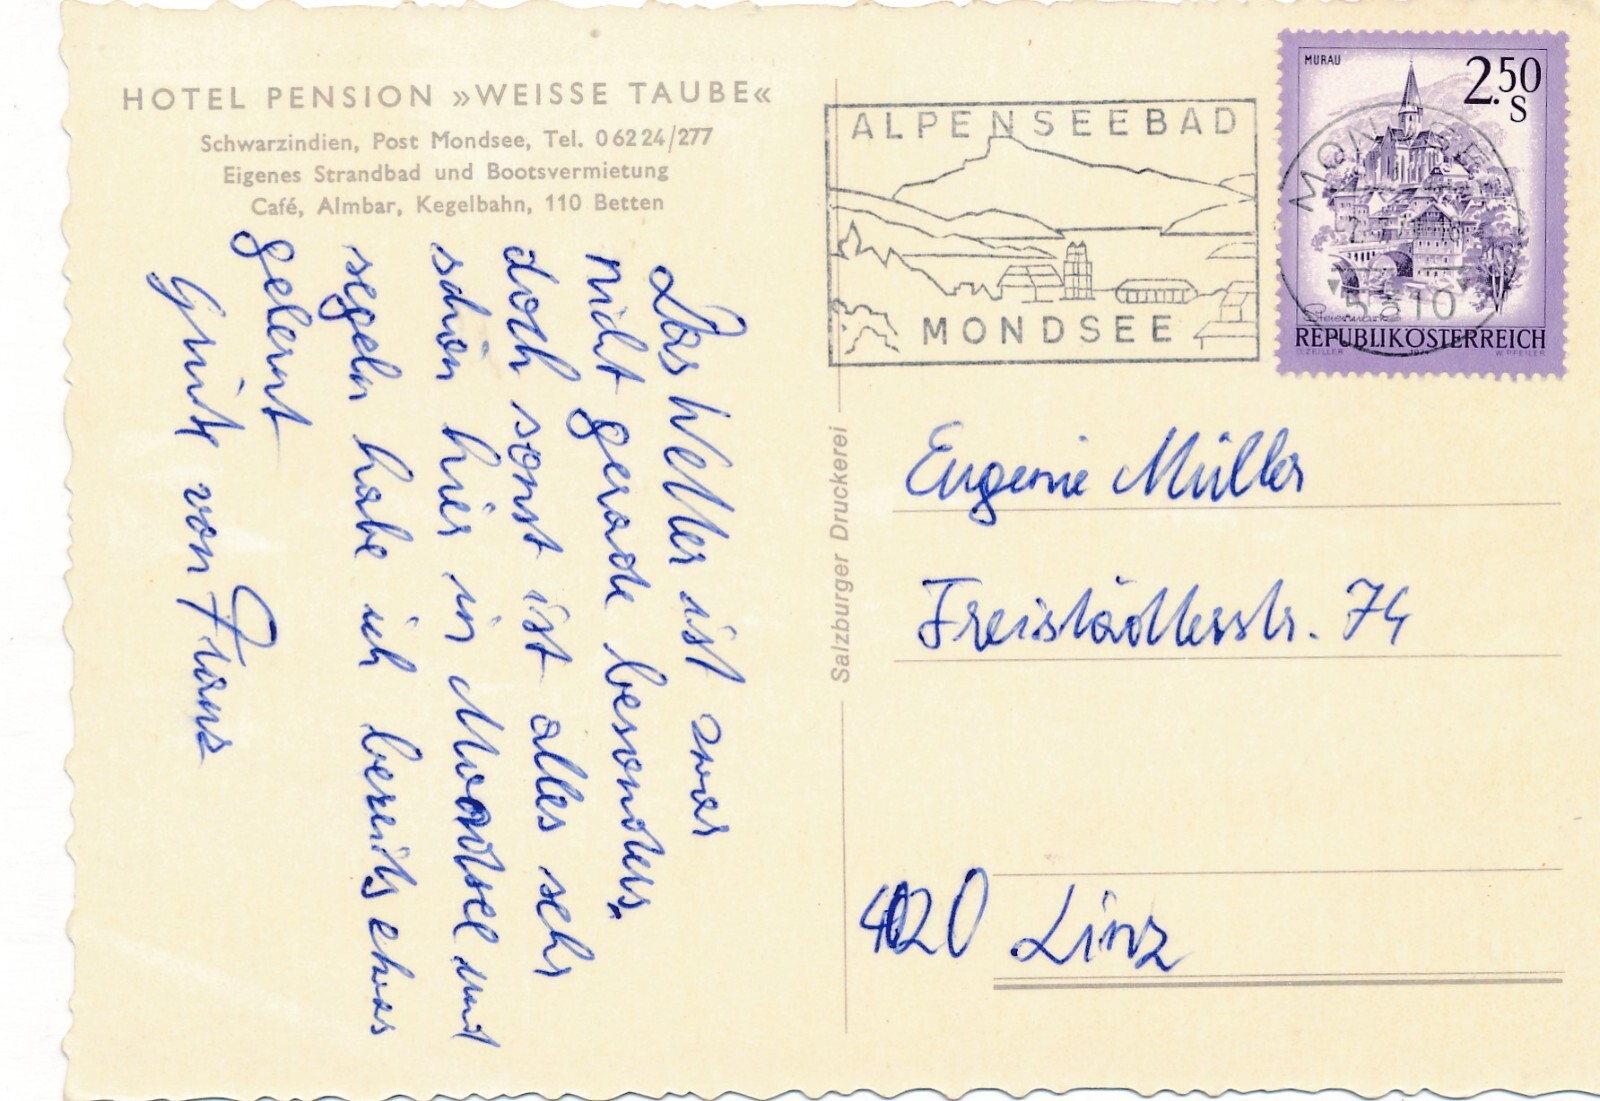 HOTEL PENSION »WEISSE TAUBE«
Schwarzindien, Post Mondsee, Tel. 06224/277
Eigenes Strandbad und Bootsvermietung
Café, Almbar, Kegelbahn, 110 Betten
Das Wetter ist zwar
nicht gerade besonders,
doch sonst ist alles sehr
schön hier in Mondsee und
segeln habe ich bereits etwas
gelernt
Grüße von Franz
Salzburger Druckerei
ALPENSEEBAD
MONDSEE
MURAU
2.50
S
MONDSEE
5310
Steiermark
REPUBLIK ÖSTERREICH
O. ZEILER W. PFEILER
Eugenie Müller
Freistädterstr. 74
4020 Linz